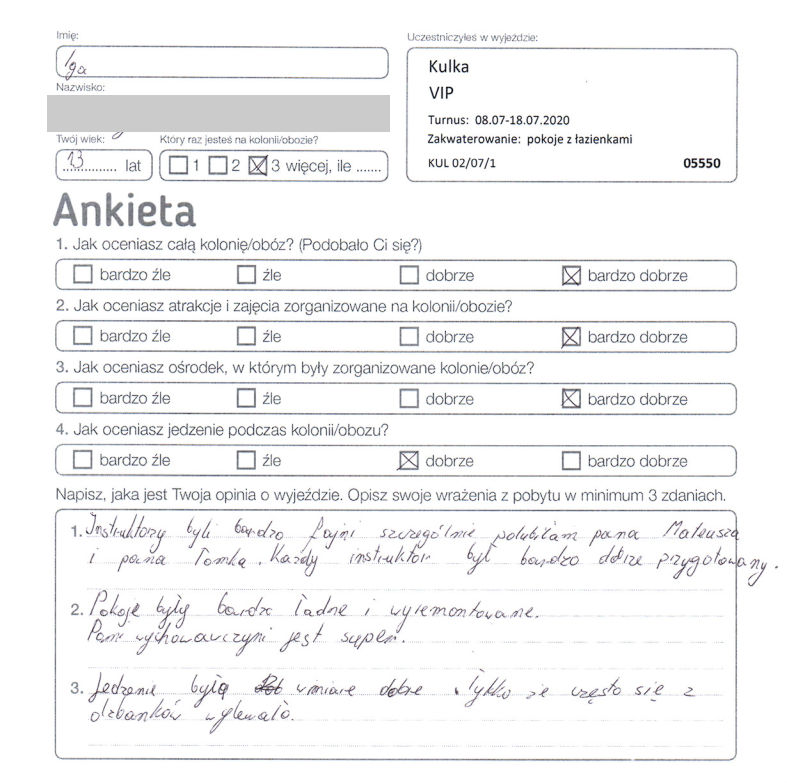 Imię:
Iga
Nazwisko:
Twój wiek:
13 lat
Który raz jesteś na kolonii/obozie?
1 2 3 więcej, ile .......
Uczestniczyłeś w wyjeździe:
Kulka
VIP
Turnus: 08.07-18.07.2020
Zakwaterowanie: pokoje z łazienkami
KUL 02/07/1 05550
Ankieta
1. Jak oceniasz całą kolonię/obóz? (Podobało Ci się?)
bardzo źle źle dobrze bardzo dobrze
2. Jak oceniasz atrakcje i zajęcia zorganizowane na kolonii/obozie?
bardzo źle źle dobrze bardzo dobrze
3. Jak oceniasz ośrodek, w którym były zorganizowane kolonie/obóz?
bardzo źle źle dobrze bardzo dobrze
4. Jak oceniasz jedzenie podczas kolonii/obozu?
bardzo źle źle dobrze bardzo dobrze
Napisz, jaka jest Twoja opinia o wyjeździe. Opisz swoje wrażenia z pobytu w minimum 3 zdaniach.
1. Instruktorzy byli bardzo fajni szczególnie polubiłam pana Mateusza
i pana Tomka. Każdy instruktor był bardzo dobrze przygotowany.
2. Pokoje były bardzo ładne i wyremontowane.
Pani wychowawczyni jest super.
3. Jedzenie było w miare dobre. Tylko że często się z
dzbanków wylewało.